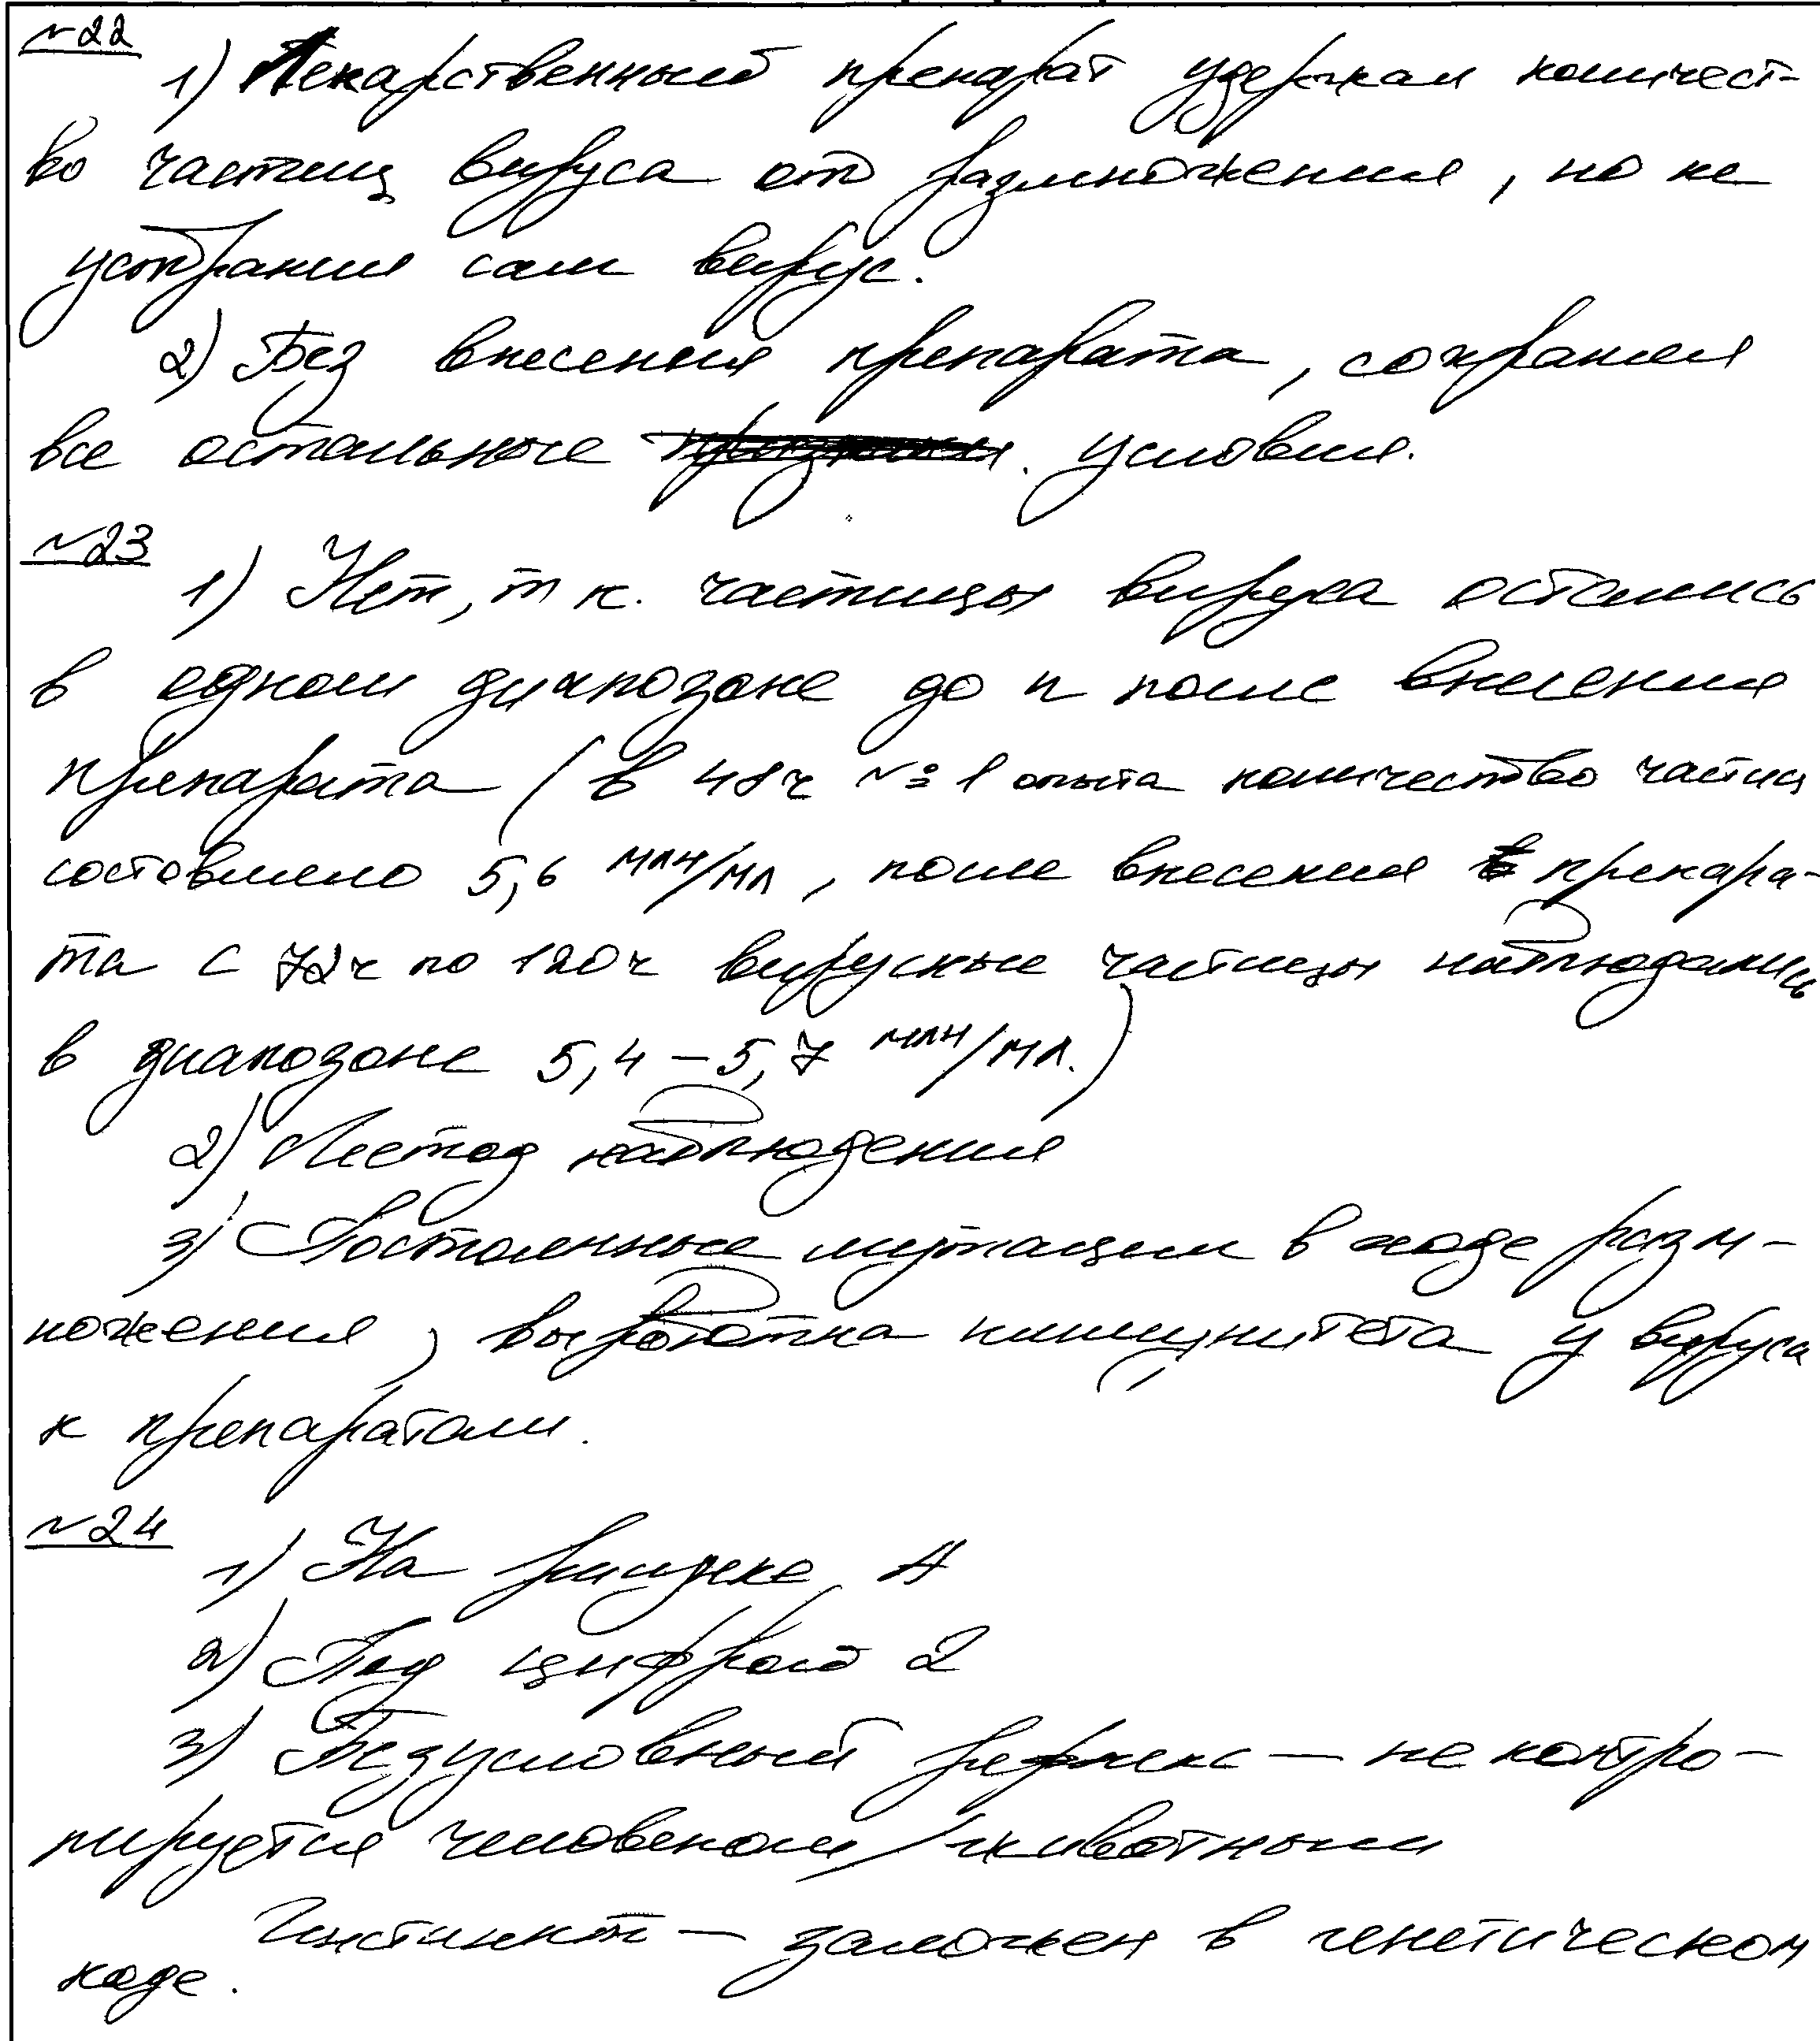 №22
1) Лекарственный препарат удержал количест-
во частиц вируса от размножения, но не
устранил сам вирус.
2) Без внесения препарата, сохраняя
все остальные условия.
№23
1) Нет, т к. частицы вируса остались
в одном диапозоне до и после внесения
препарата (в 48ч №1 опыта количество частиц
составляло 5,6 млн/мл, после внесения препара-
та с 72ч по 120ч вирусные частицы наблюдались
в диапозоне 5,4 – 5,7 млн/мл.)
2) Метод наблюдения
3) Постоянные мутации в ходе разм-
ножения, выработка иммунитета у вируса
к препаратам.
№24
1) На рисунке А
2) Под цифрой 2
3) Безусловный рефлекс – не контро-
лируется человеком/животным
Инстинкт – заложен в генетическом
коде.